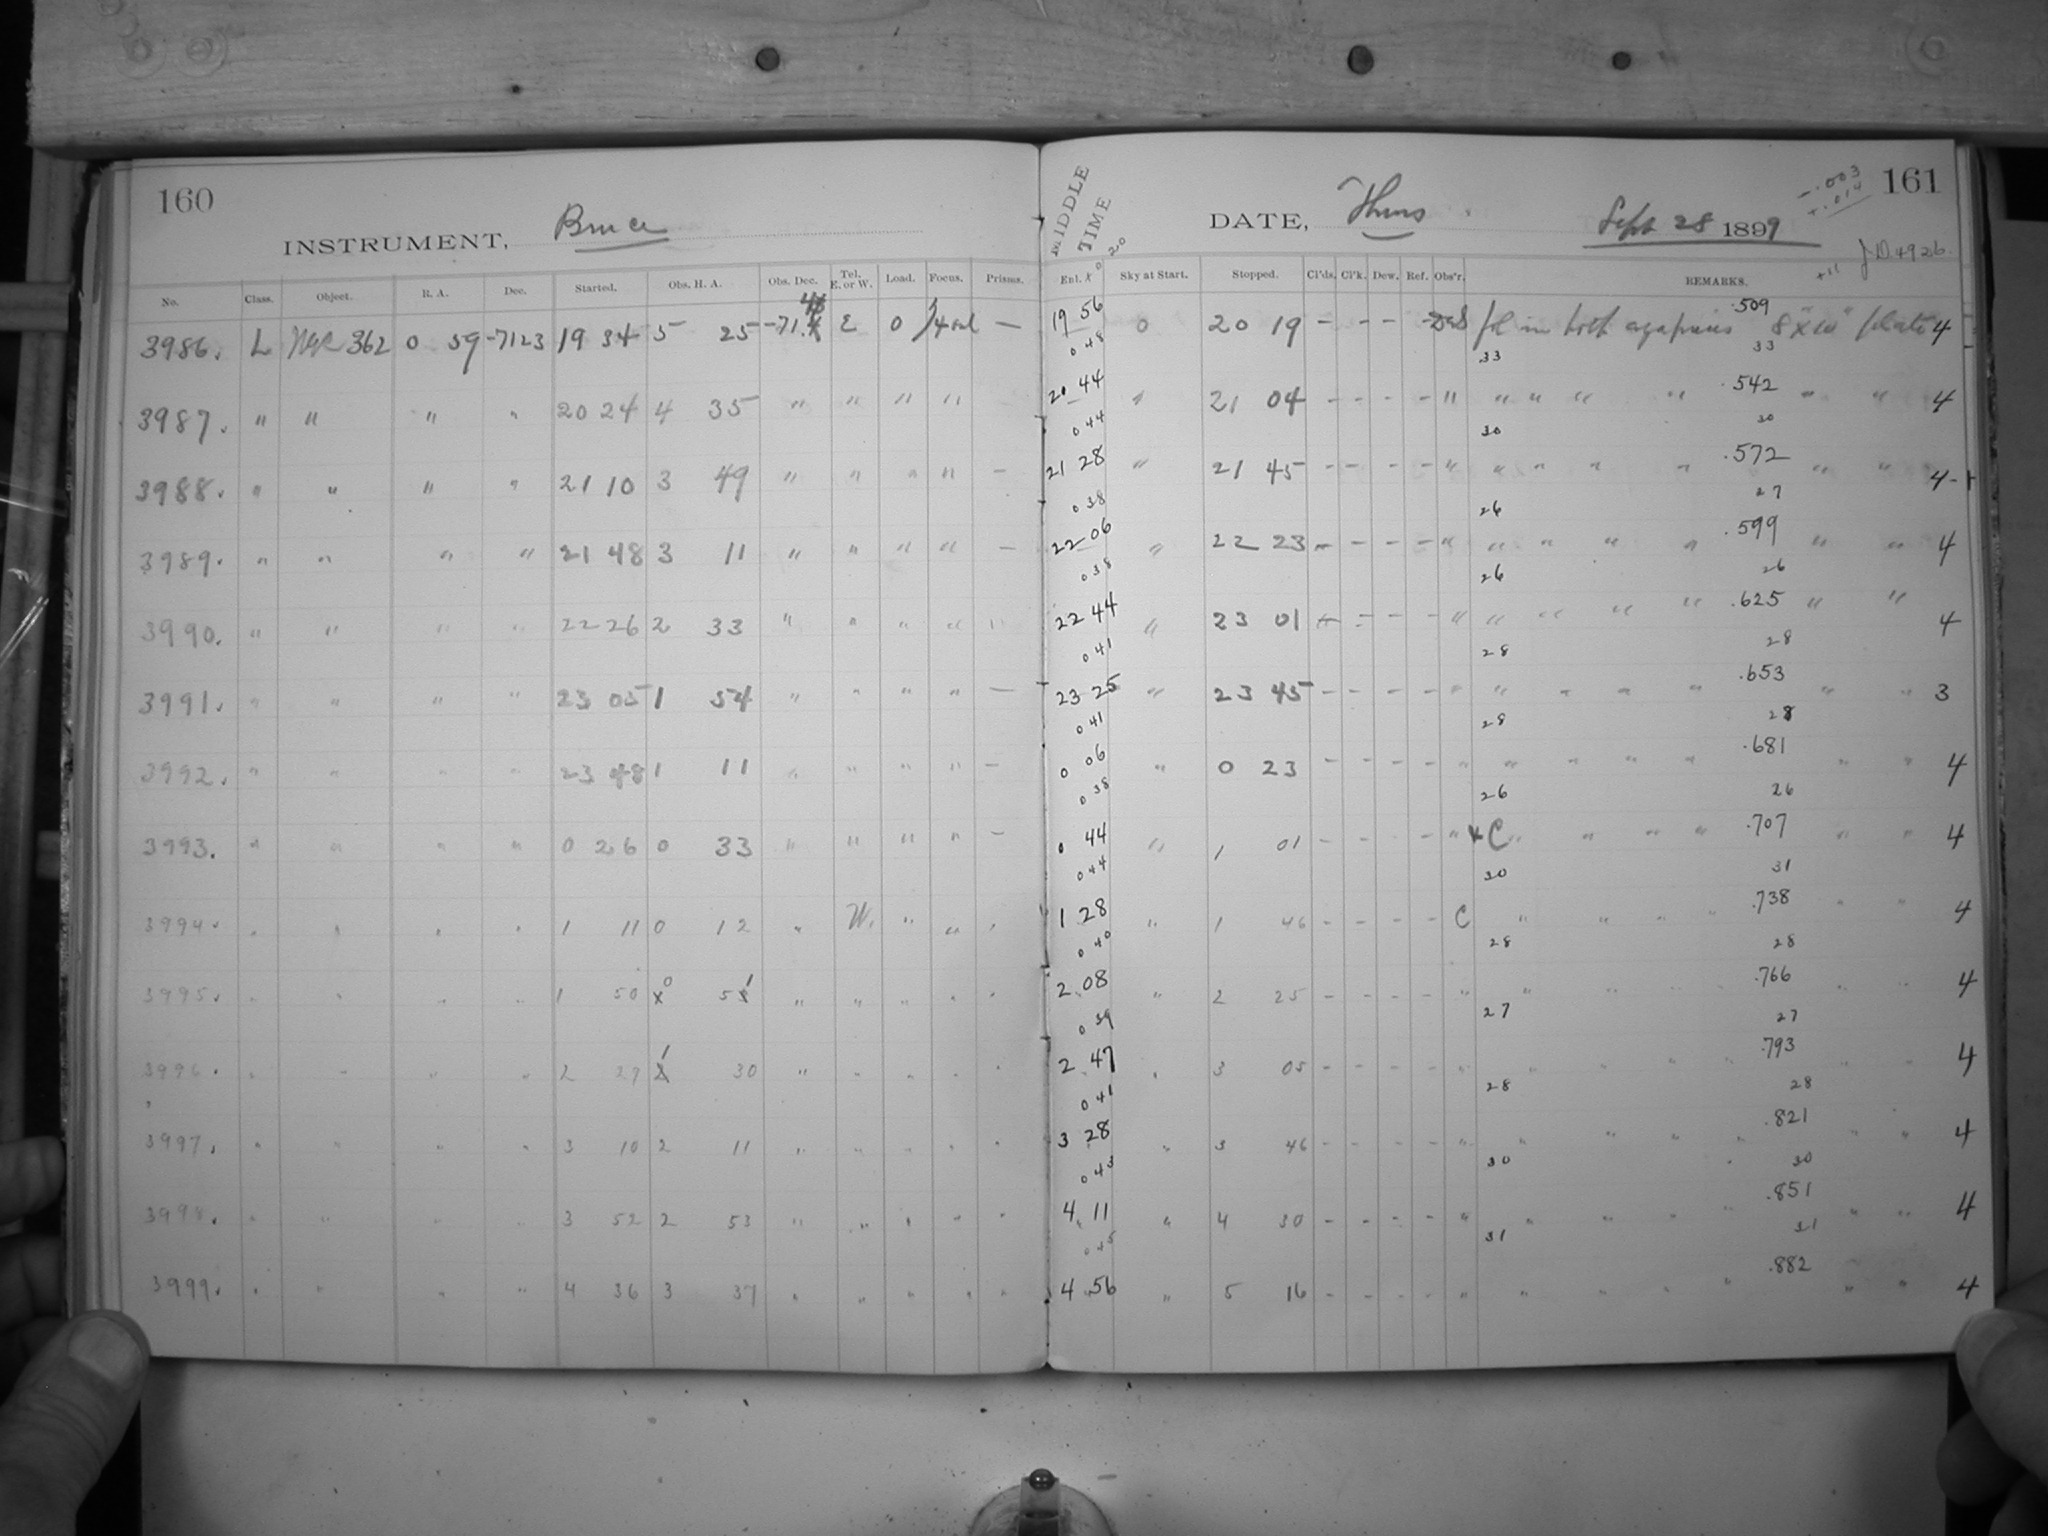 160
INSTRUMENT, Bruce
No. Class. Object. R. A. Dec. Started. Obs. H. A. Obs. Dec. Tel. E. or W. Load. Focus. Prisms.
3986. L NGC 362 0 59 -7123 19 34 5 25 -71. E 0 —
3987. " " " " 20 24 4 35 " " " "
3988. " " " " 21 10 3 49 " " " " —
3989. " " " " 21 48 3 11 " " " " —
3990. " " " " 22 26 2 33 " " " " "
3991. " " " " 23 05 1 54 " " " " —
3992. " " " " 23 48 1 11 " " " " —
3993. " " " " 0 26 0 33 " " " " —
3994. " " " " 1 11 0 12 " W. " " "
3995. " " " " 1 50 0 51 " " " " "
3996. " " " " 2 29 1 30 " " " " "
3997. " " " " 3 10 2 11 " " " " "
3998. " " " " 3 52 2 53 " " " " "
3999. " " " " 4 36 3 37 " " " " "
MIDDLE TIME
DATE, Thurs. Sept 28 1899
-.003
+.014
+11
161
J.D. 4926.
20
Enl. Sky at Start. Stopped. Cl'ds. Cl'k. Dew. Ref. Obs'r. REMARKS.
19 56 0 20 19 - - - - in both 8"x10" plate .509 4
0 48 33 33
20 44 " 21 04 - - - - " " " " " .542 " " 4
0 44 30 30
21 28 " 21 45 - - - - " " " " " .572 " " 4-
0 38 26 27
22 06 " 22 23 - - - - " " " " " .599 " " 4
0 38 26 26
22 44 " 23 01 - - - - " " " " " .625 " " 4
0 41 28 28
23 25 " 23 45 - - - - " " " " " .653 " " 3
0 41 28 28
0 06 " 0 23 - - - - " " " " " .681 " " 4
0 38 26 26
0 44 " 1 01 - - - - " C " " " " .707 " " 4
0 44 30 31
1 28 " 1 46 - - - - C " " " " .738 " " 4
0 40 28 28
2 08 " 2 25 - - - - " " " " " .766 " " 4
0 39 27 27
2 47 " 3 05 - - - - " " " " " .793 " " 4
0 41 28 28
3 28 " 3 46 - - - - " " " " " .821 " " 4
0 43 30 30
4 11 " 4 30 - - - - " " " " " .851 " " 4
0 45 31 31
4 56 " 5 16 - - - - " " " " " .882 " " 4